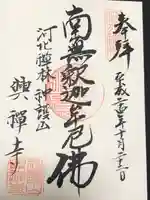 奉拝
平成二十年十月二十一日
南無釈迦牟尼佛
河北禅林神護山
興禅寺